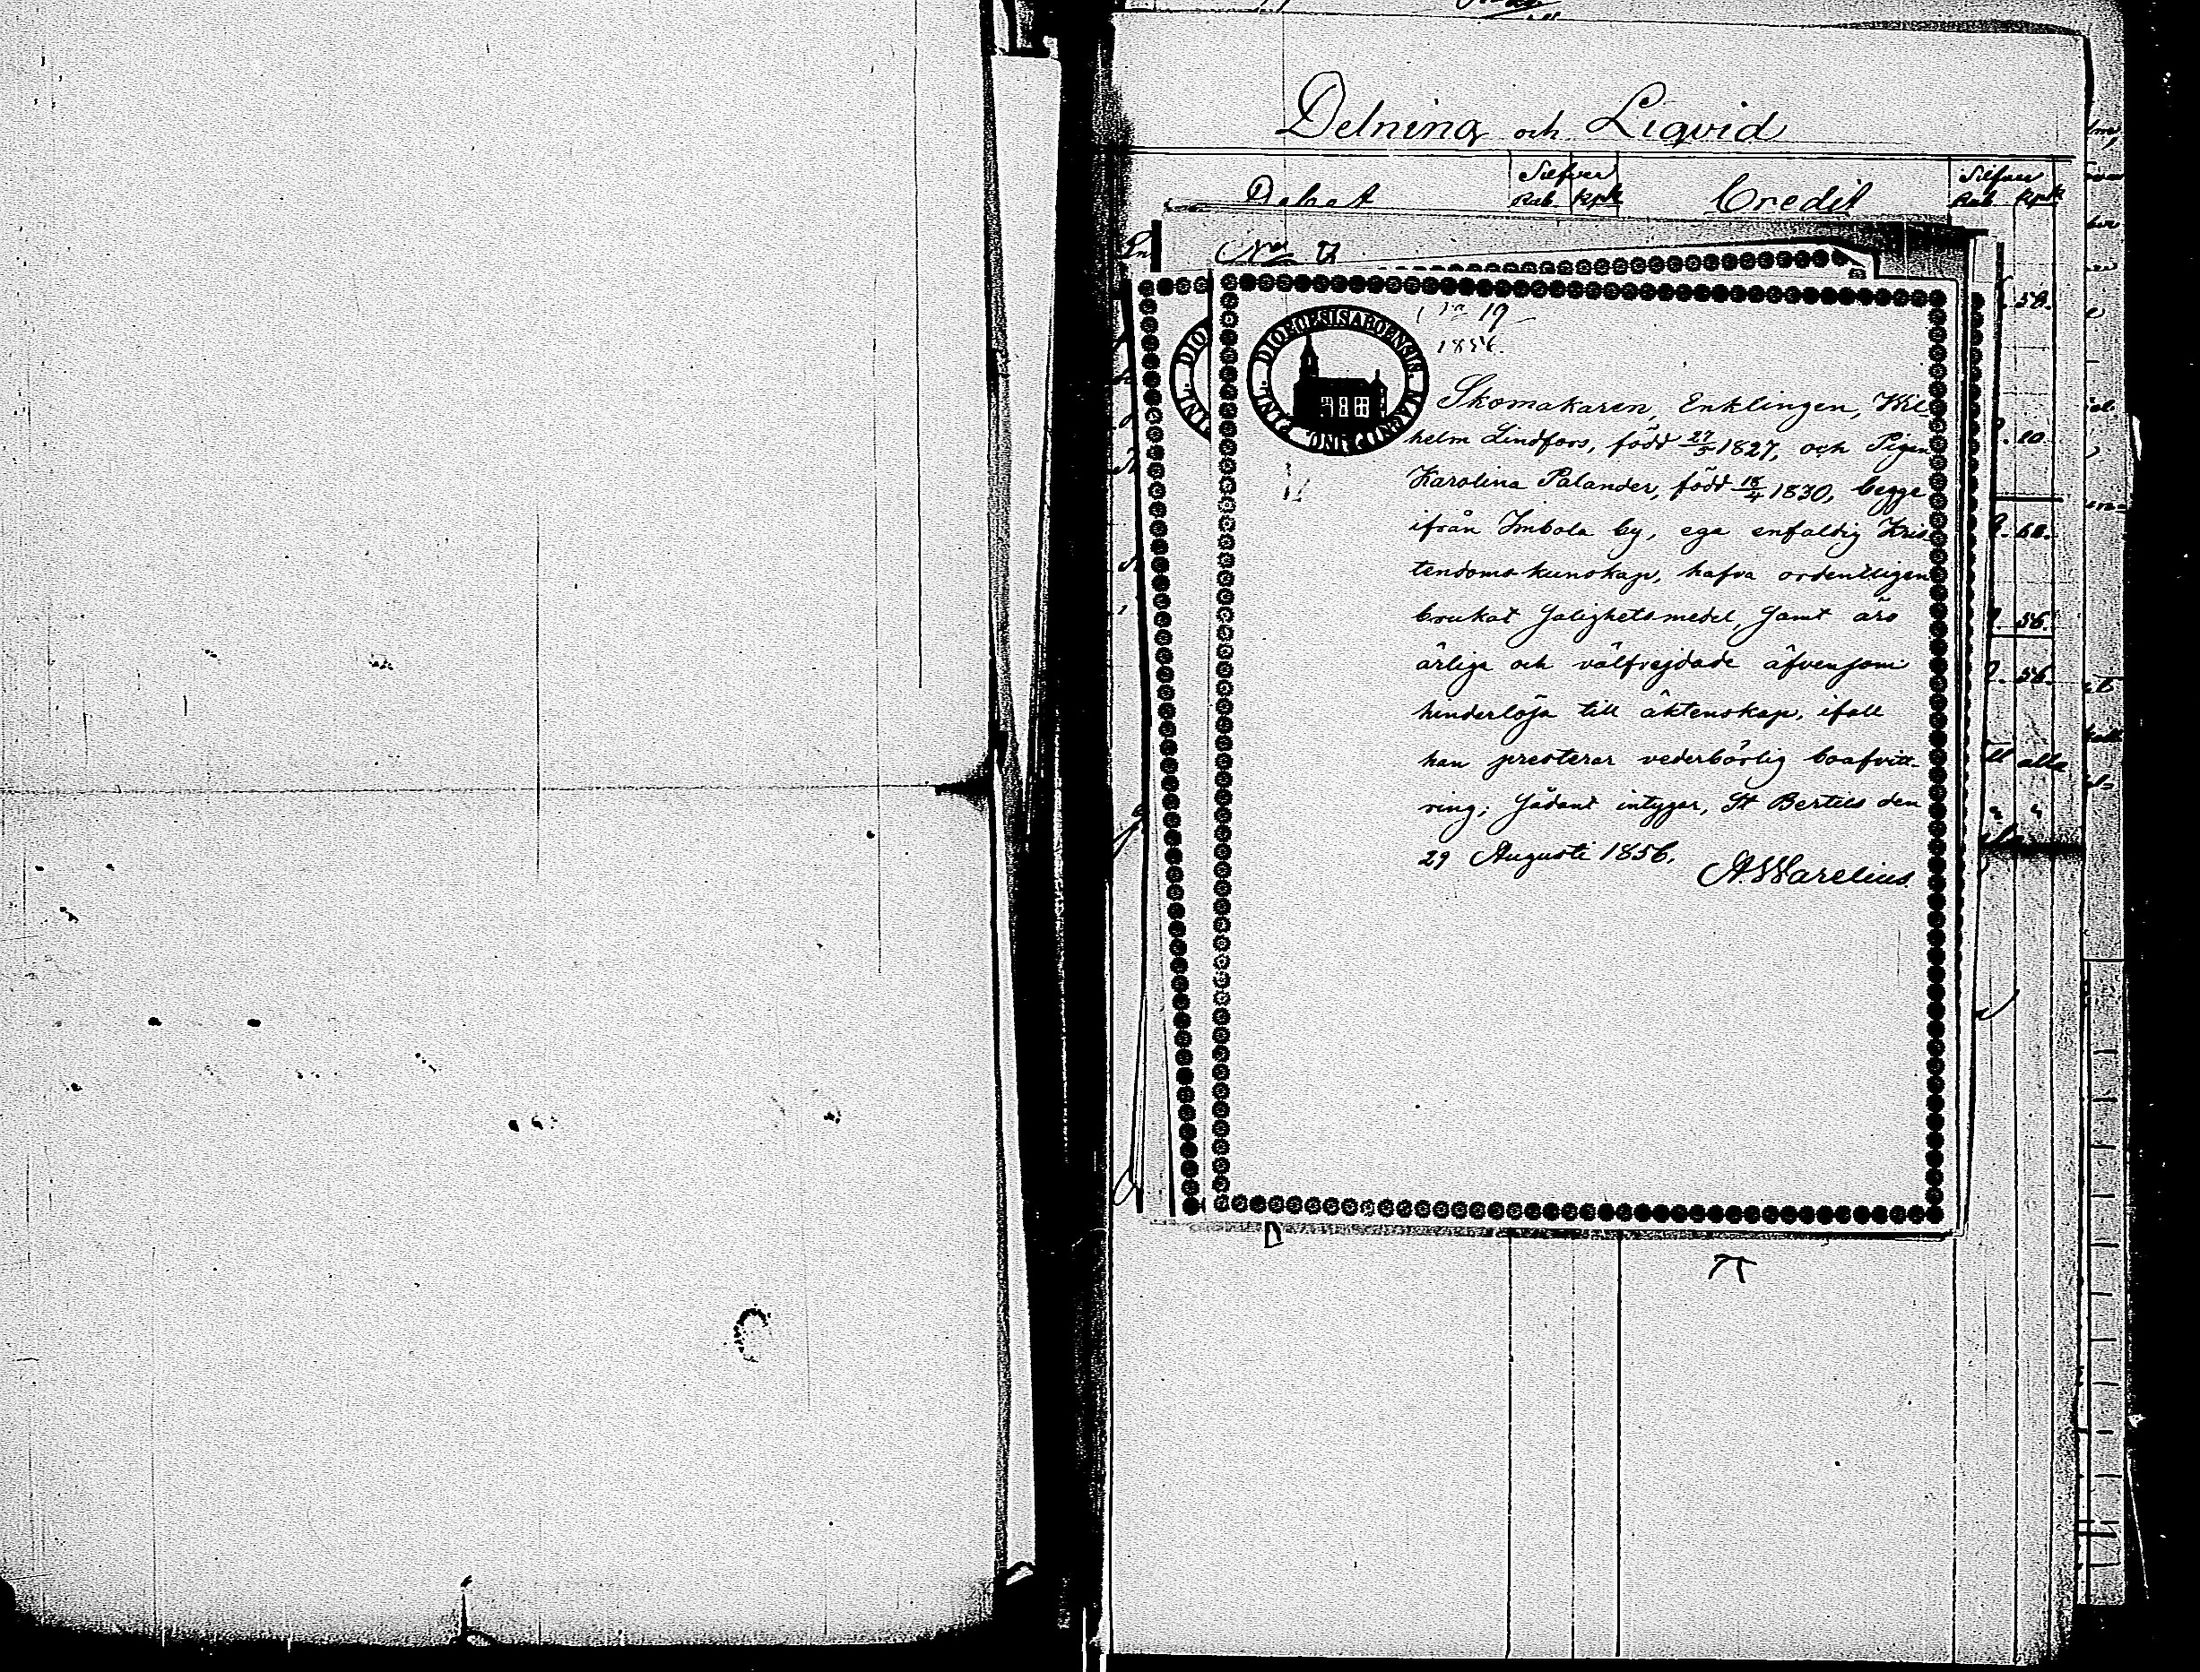 Delning och Liqvid
Debet
Silfver
Rub. Kopk
Credit
Silfver
Rub. Kopk
No 19
1856.
DIOECESIS ABOENSIS. MAGNI DUC. FINL.
Skomakaren, Enklingen, Wil-
helm Lindfors, född 27/5 1827, och Pigan
Karolina Palander, född 18/4 1830, begge
ifrån Imbola by, ega enfaldig Kris-
tendomskunskap, hafva ordentligen
brukat Salighetsmedel, samt äro
ärliga och välfrejdade äfvensom
hinderlösa till äktenskap, ifall
han presterar vederbörlig boafvitt-
ring; Sådant intygar, St Bertils den
29 Augusti 1856.
A.Warelius.
50.
10.
60.
56.
56.
alla